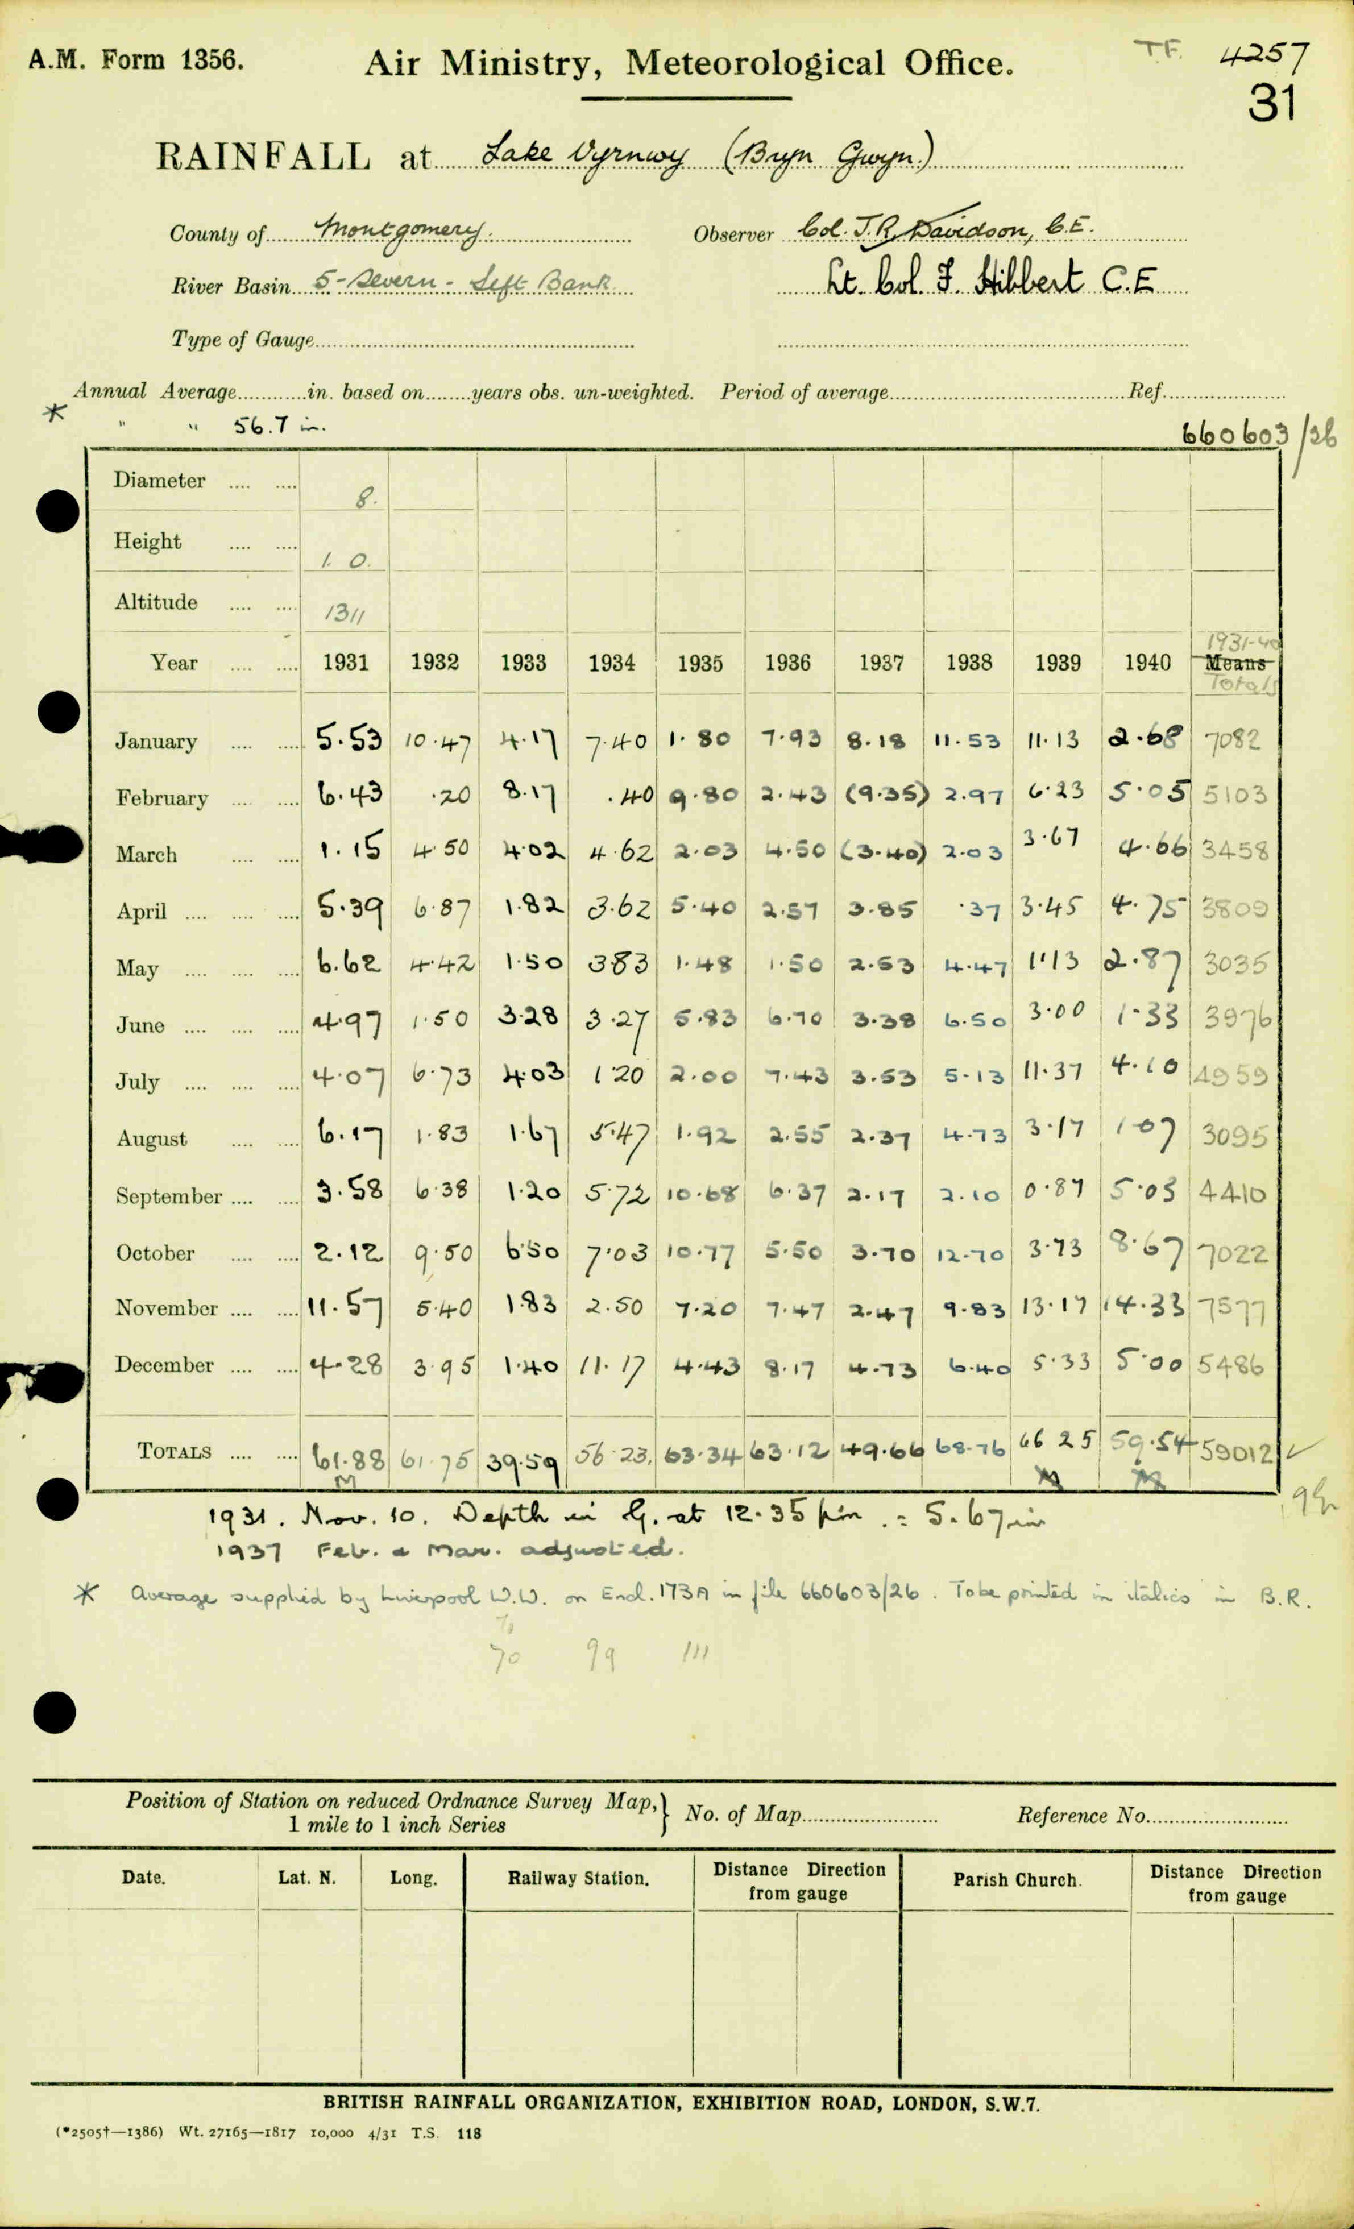 A.M. Form 1356.
Air Ministry, Meteorological Office.
T.F. 4257
31
RAINFALL at Lake Vyrnwy (Bryn Gwyn.)
County of Montgomery. Observer Col. J.R. Davidson, C.E.
River Basin 5-Severn - Left Bank Lt. Col. F. Hibbert C.E
Type of Gauge
Annual Average in. based on years obs. un-weighted. Period of average Ref.
* " " 56.7 in. 660603/26
Diameter 8.
Height 1. 0.
Altitude 1311
Year 1931 1932 1933 1934 1935 1936 1937 1938 1939 1940 1931-40 Means Totals
January 5.53 10.47 4.17 7.40 1.80 7.93 8.18 11.53 11.13 2.68 7082
February 6.43 .20 8.17 .40 9.80 2.43 (9.35) 2.97 6.23 5.05 5103
March 1.15 4.50 4.02 4.62 2.03 4.50 (3.40) 2.03 3.67 4.66 3458
April 5.39 6.87 1.82 3.62 5.40 2.57 3.85 .37 3.45 4.75 3809
May 6.62 4.42 1.50 3.83 1.48 1.50 2.53 4.47 1.13 2.87 3035
June 4.97 1.50 3.28 3.27 5.83 6.70 3.38 6.50 3.00 1.33 3976
July 4.07 6.73 4.03 1.20 2.00 7.43 3.53 5.13 11.37 4.10 4959
August 6.17 1.83 1.67 5.47 1.92 2.55 2.37 4.73 3.17 1.07 3095
September 3.58 6.38 1.20 5.72 10.68 6.37 2.17 2.10 0.87 5.03 4410
October 2.12 9.50 6.50 7.03 10.77 5.50 3.70 12.70 3.73 8.67 7022
November 11.57 5.40 1.83 2.50 7.20 7.47 2.47 9.83 13.17 14.33 7577
December 4.28 3.95 1.40 11.17 4.43 8.17 4.73 6.40 5.33 5.00 5486
TOTALS 61.88 61.75 39.59 56.23 63.34 63.12 49.66 68.76 66.25 59.54 59012 ✓
M M M
1931. Nov. 10. Depth in G. at 12.35 pm. = 5.67 in
1937 Feb. & Mar. adjusted.
* Average supplied by Liverpool W.W. on Encl. 173A in file 660603/26. To be printed in italics in B.R.
%
70 99 111
Position of Station on reduced Ordnance Survey Map, } No. of Map Reference No.
1 mile to 1 inch Series
Date. Lat. N. Long. Railway Station. Distance Direction from gauge Parish Church. Distance Direction from gauge
BRITISH RAINFALL ORGANIZATION, EXHIBITION ROAD, LONDON, S.W.7.
(*2505†—1386) Wt. 27165—1817 10,000 4/31 T.S. 118